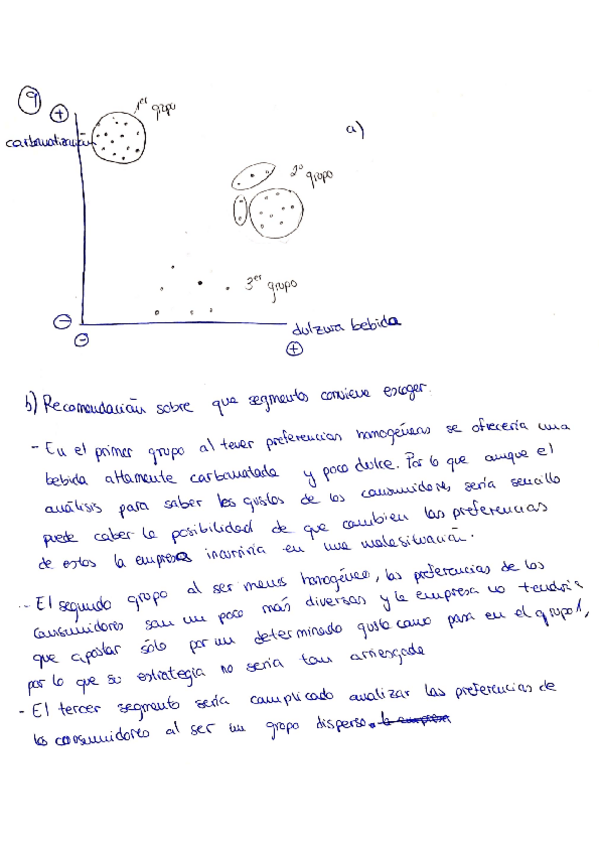 9
+
1er grupo
carbonatización
a)
2º grupo
3er grupo
-
-
dulzura bebida
+
b) Recomendación sobre que segmentos conviene escoger.
- En el primer grupo al tener preferencias homogéneas se ofrecería una
bebida altamente carbonatada y poco dulce. Por lo que aunque el
análisis para saber los gustos de los consumidores, sería sencillo
puede caber la posibilidad de que cambien las preferencias
de estos la empresa incurriría en una mala situación.
- El segundo grupo al ser menos homogéneo, las preferencias de los
consumidores son un poco más diversas y la empresa no tendría
que apostar sólo por un determinado gusto como pasa en el grupo 1,
por lo que su estrategia no sería tan arriesgada
- El tercer segmento sería complicado analizar las preferencias de
los consumidores al ser un grupo disperso. la empresa